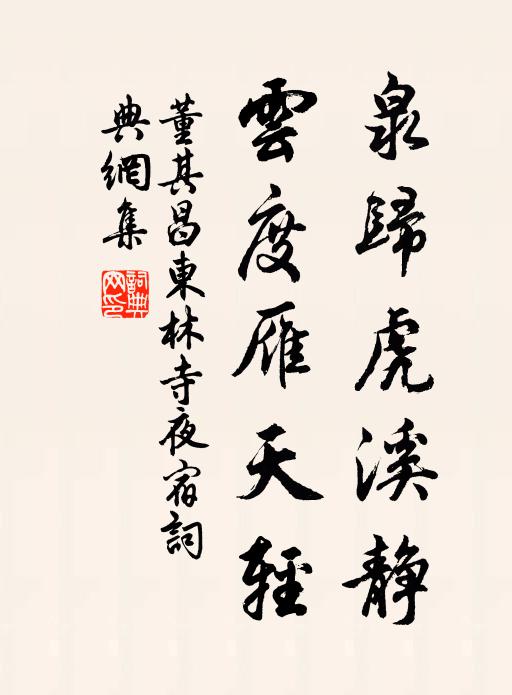 泉歸虎溪静
雲度雁天輕
董其昌東林寺夜宿詞
典網集
詞典網印